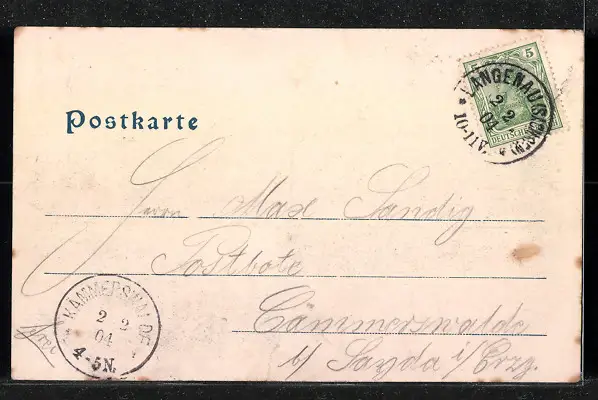 5
DEUTSCHES
LANGENAU (SACHSEN)
2 2
04
10-11V.
Postkarte
Herrn Max Sandig
Postbote
Cämmerswalde
b/ Sayda i/ Erzg.
KÄMMERSWALDE
2 2
04
4-5N.